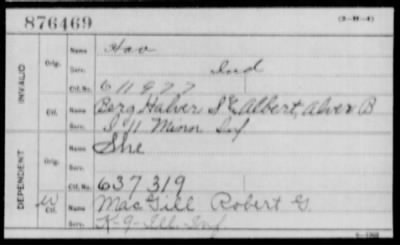 876469
(3-H-4)
INVALID
Orig.
Name Hav
Serv. Ind
Ctf. No. 611977
Ctf.
Name Berg Halver S & Albert, Alver B
Serv. I 11 Minn Inf
DEPENDENT
Orig.
Name She
Serv.
Ctf. No. 637319
W Ctf.
Name MacGill Robert G.
Serv. K-9-Ill. Inf